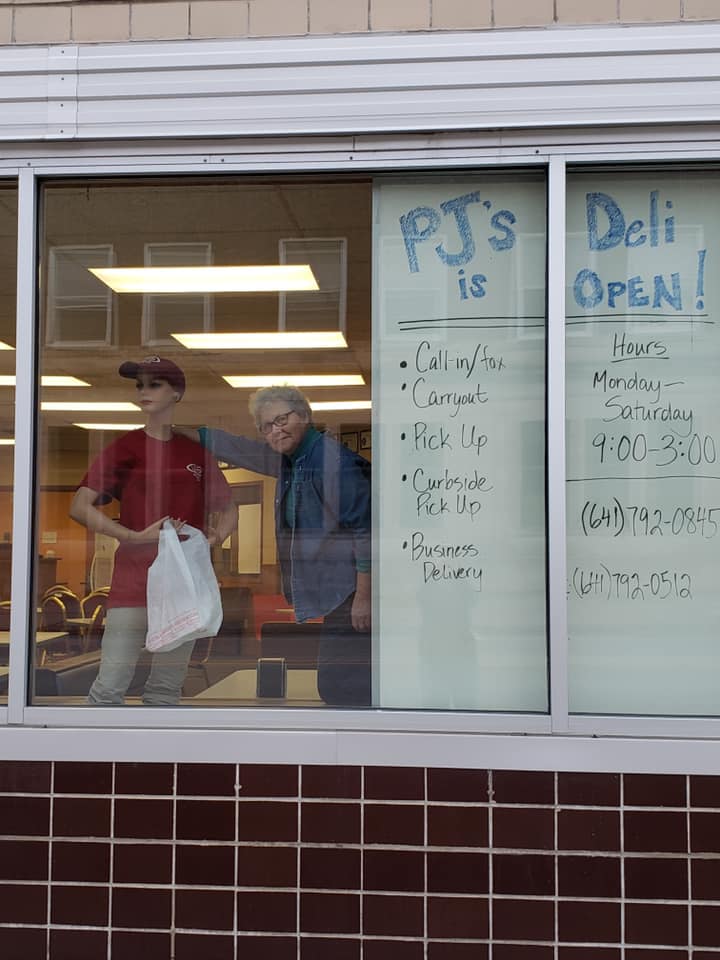 PJ's
is
• Call-in/fax
• Carryout
• Pick Up
• Curbside
Pick Up
• Business
Delivery
Deli
OPEN!
Hours
Monday-
Saturday
9:00-3:00
(641)792-0845
(641)792-0512